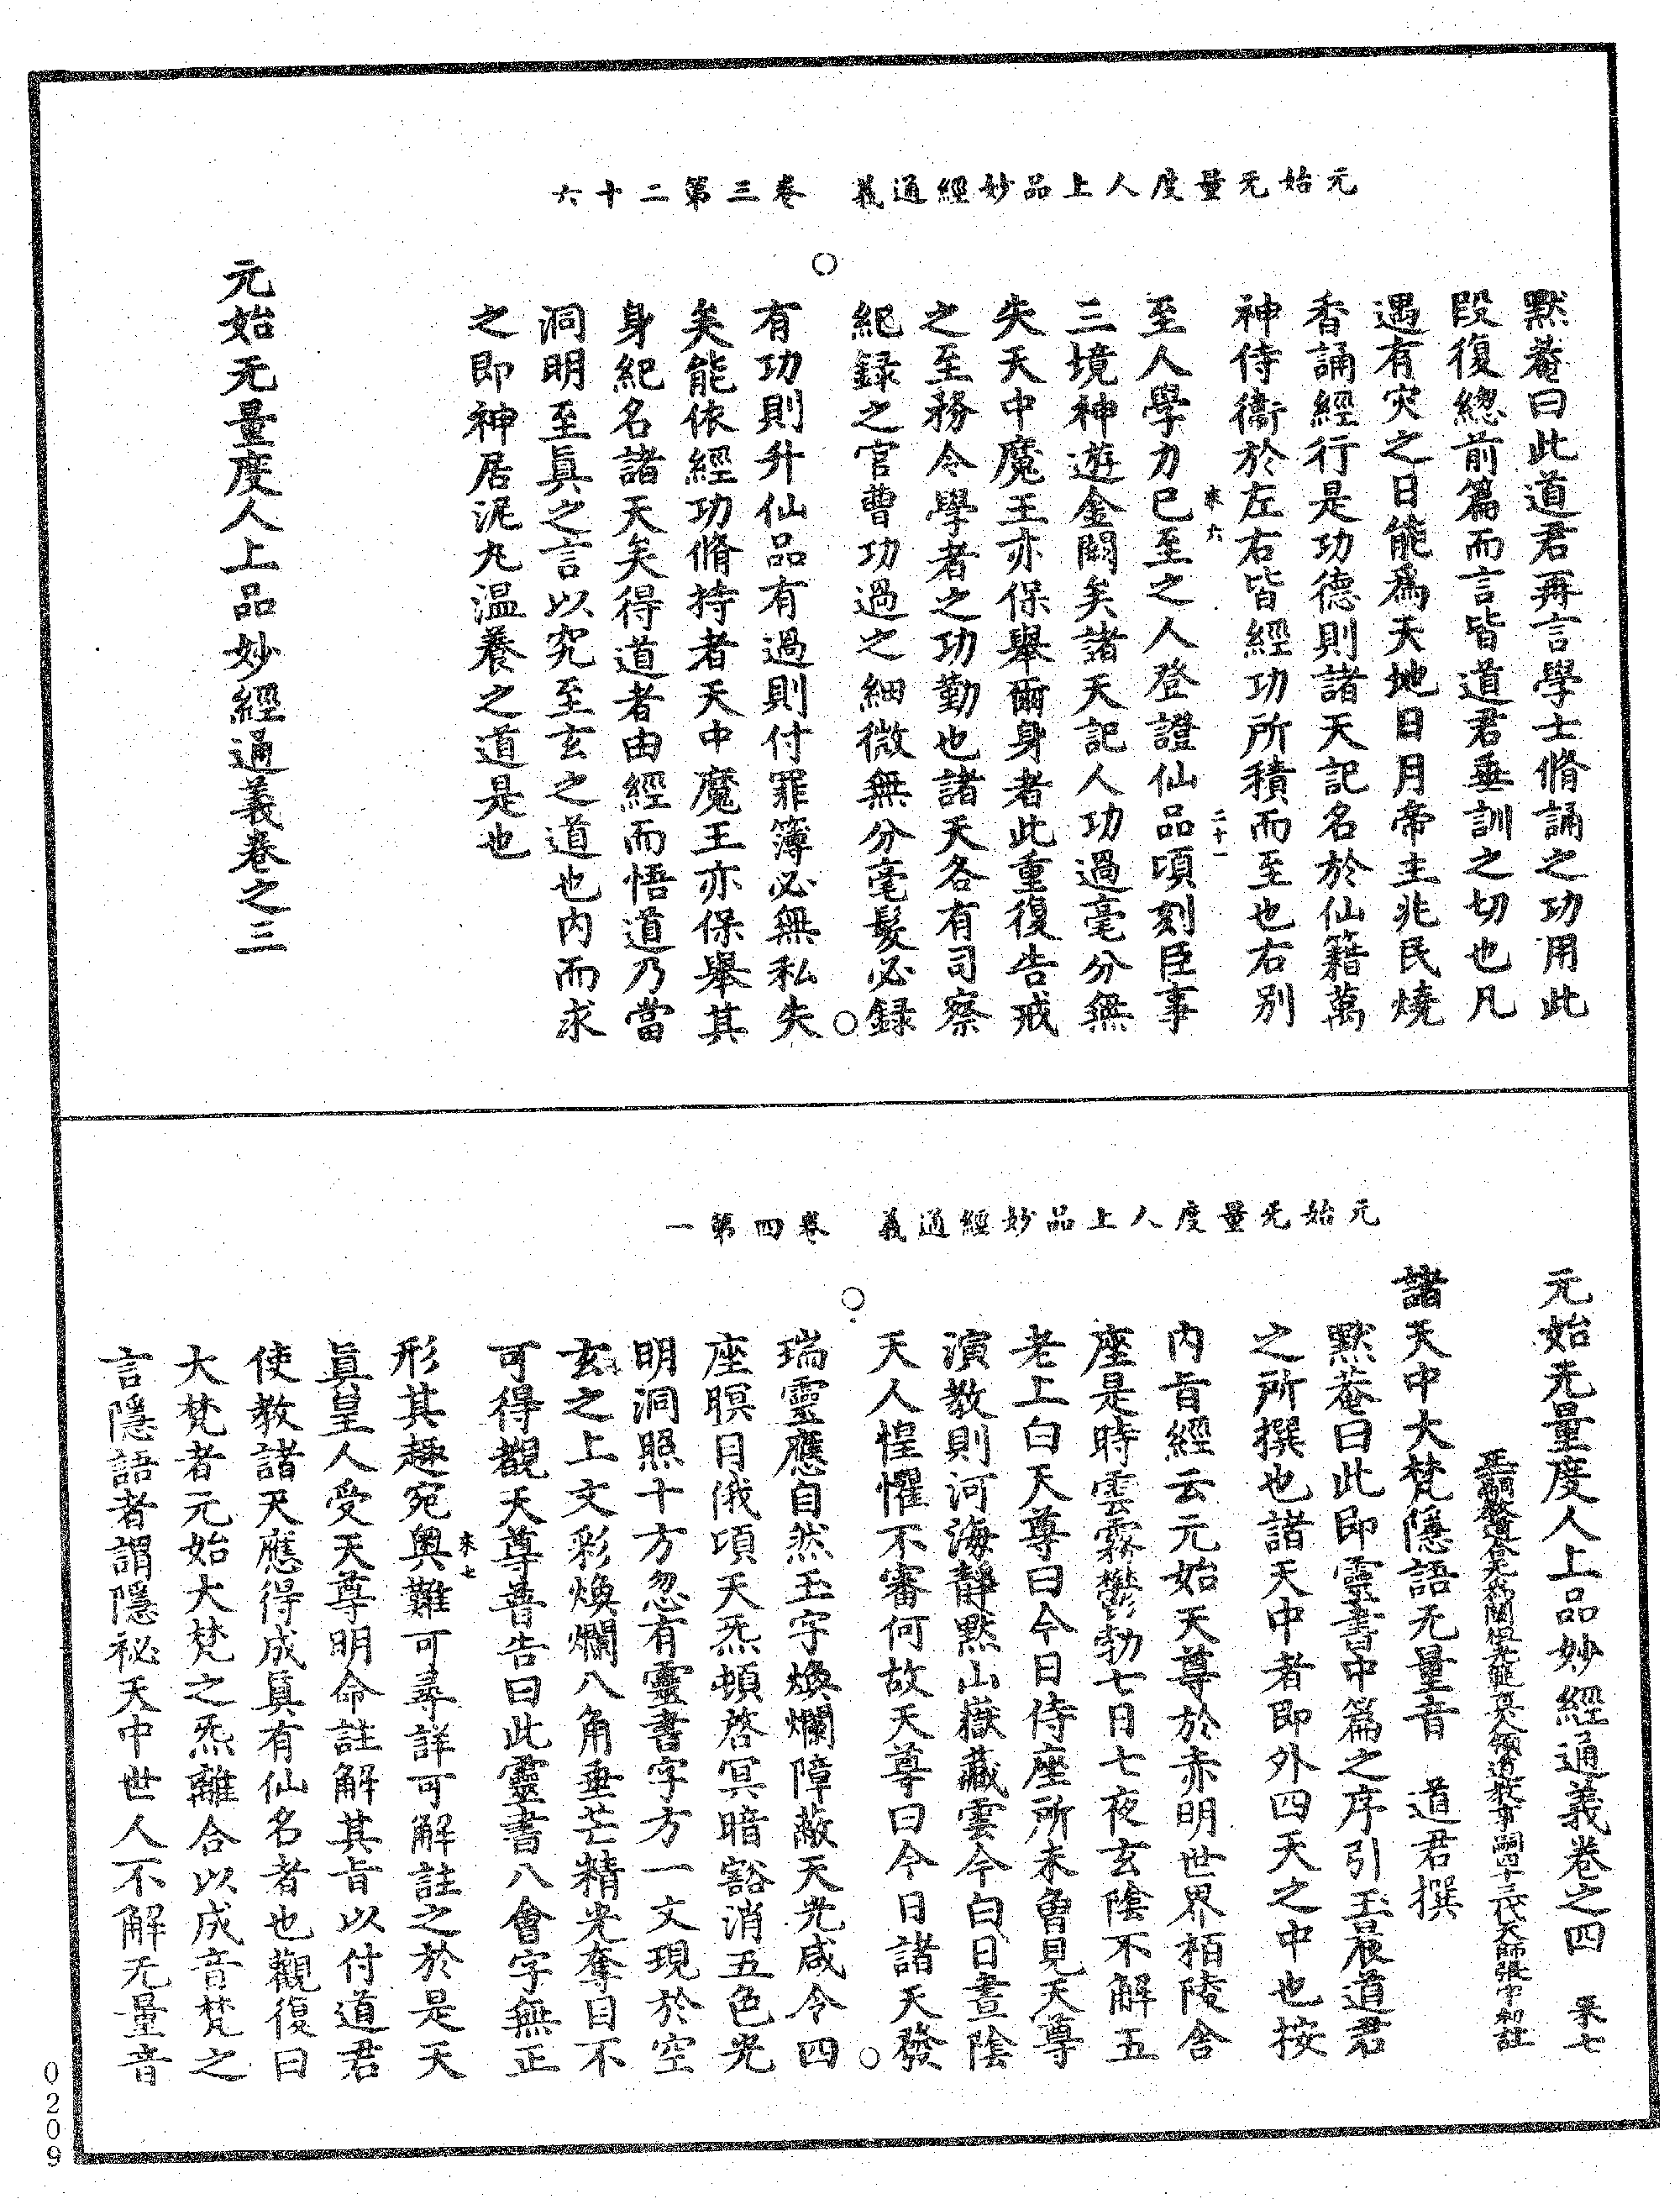 元始无量度人上品妙經通義　卷三第二十六
默菴曰此道君再言學士脩誦之功用此
段復緫前篇而言皆道君垂訓之切也凡
遇有灾之日能爲天地日月帝主兆民燒
香誦經行是功德則諸天記名於仙籍萬
神侍衞於左右皆經功所積而至也右別
來六　二十一
至人學力已至之人登證仙品頃刻臣事
三境神遊金闕矣諸天記人功過毫分無
失天中魔王亦保舉爾身者此重復告戒
之至務令學者之功勤也諸天各有司察
紀録之官曹功過之細微無分毫髮必録
有功則升仙品有過則付罪簿必無私失
矣能依經功脩持者天中魔王亦保舉其
身紀名諸天矣得道者由經而悟道乃當
洞明至眞之言以究至玄之道也内而求
之即神居泥丸温養之道是也
元始无量度人上品妙經通義卷之三
元始无量度人上品妙經通義　卷四第一
元始无量度人上品妙經通義卷之四　來七
天師張宇初註
諸天中大梵隱語无量音　道君撰
默菴曰此即靈書中篇之序引玉晨道君
之所撰也諸天中者即外四天之中也按
内旨經云元始天尊於赤明世界栢陵舍
座是時雲霧鬱勃七日七夜玄陰不解五
老上白天尊曰今日侍座所未曾見天尊
演教則河海靜默山嶽藏雲今白日晝陰
天人惶懼不審何故天尊曰今日諸天發
瑞靈應自然玉字煥爛障蔽天光咸令四
座瞑目俄頃天炁頓啓冥暗豁消五色光
明洞照十方忽有靈書字方一丈現於空
玄之上文彩煥爛八角垂芒精光奪目不
可得觀天尊普告曰此靈書八會字無正
來七
形其趣宛奥難可尋詳可解註之於是天
眞皇人受天尊明命註解其旨以付道君
使教諸天應得成眞有仙名者也觀復曰
大梵者元始大梵之炁離合以成音梵之
言隱語者謂隱祕天中世人不解无量音
0209